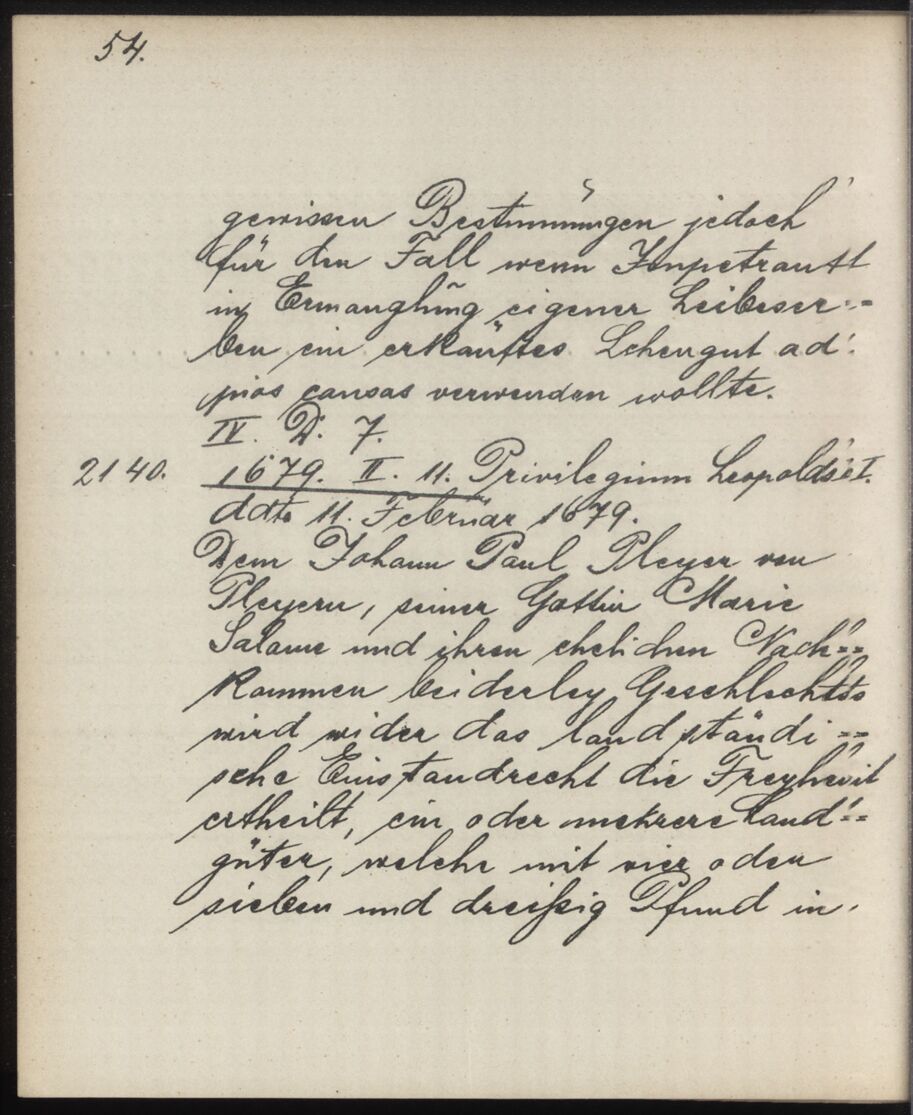 54.
gewissen Bestimmungen jedoch
für den Fall wenn Impetrantt
in Ermanglūng eigener Leibeser=
ben ein erkaūftes Lehengut ad
pias causas verwenden wollte.
IV. D. 7.
2140. 1679. II. 11. Privilegium Leopolds I.
ddto 11. Febrūar 1679.
Dem Johann Paul Pleyer von
Pleyern, seiner Gattin Marie
Salome und ihren ehelichen Nach=
kommen beiderley Geschlechtts
wird wider das landständi=
sche Einstandrecht die Freyheit
ertheilt, ein oder mehrere Land=
güter, welche mit vier oder
sieben und dreißig Pfund in